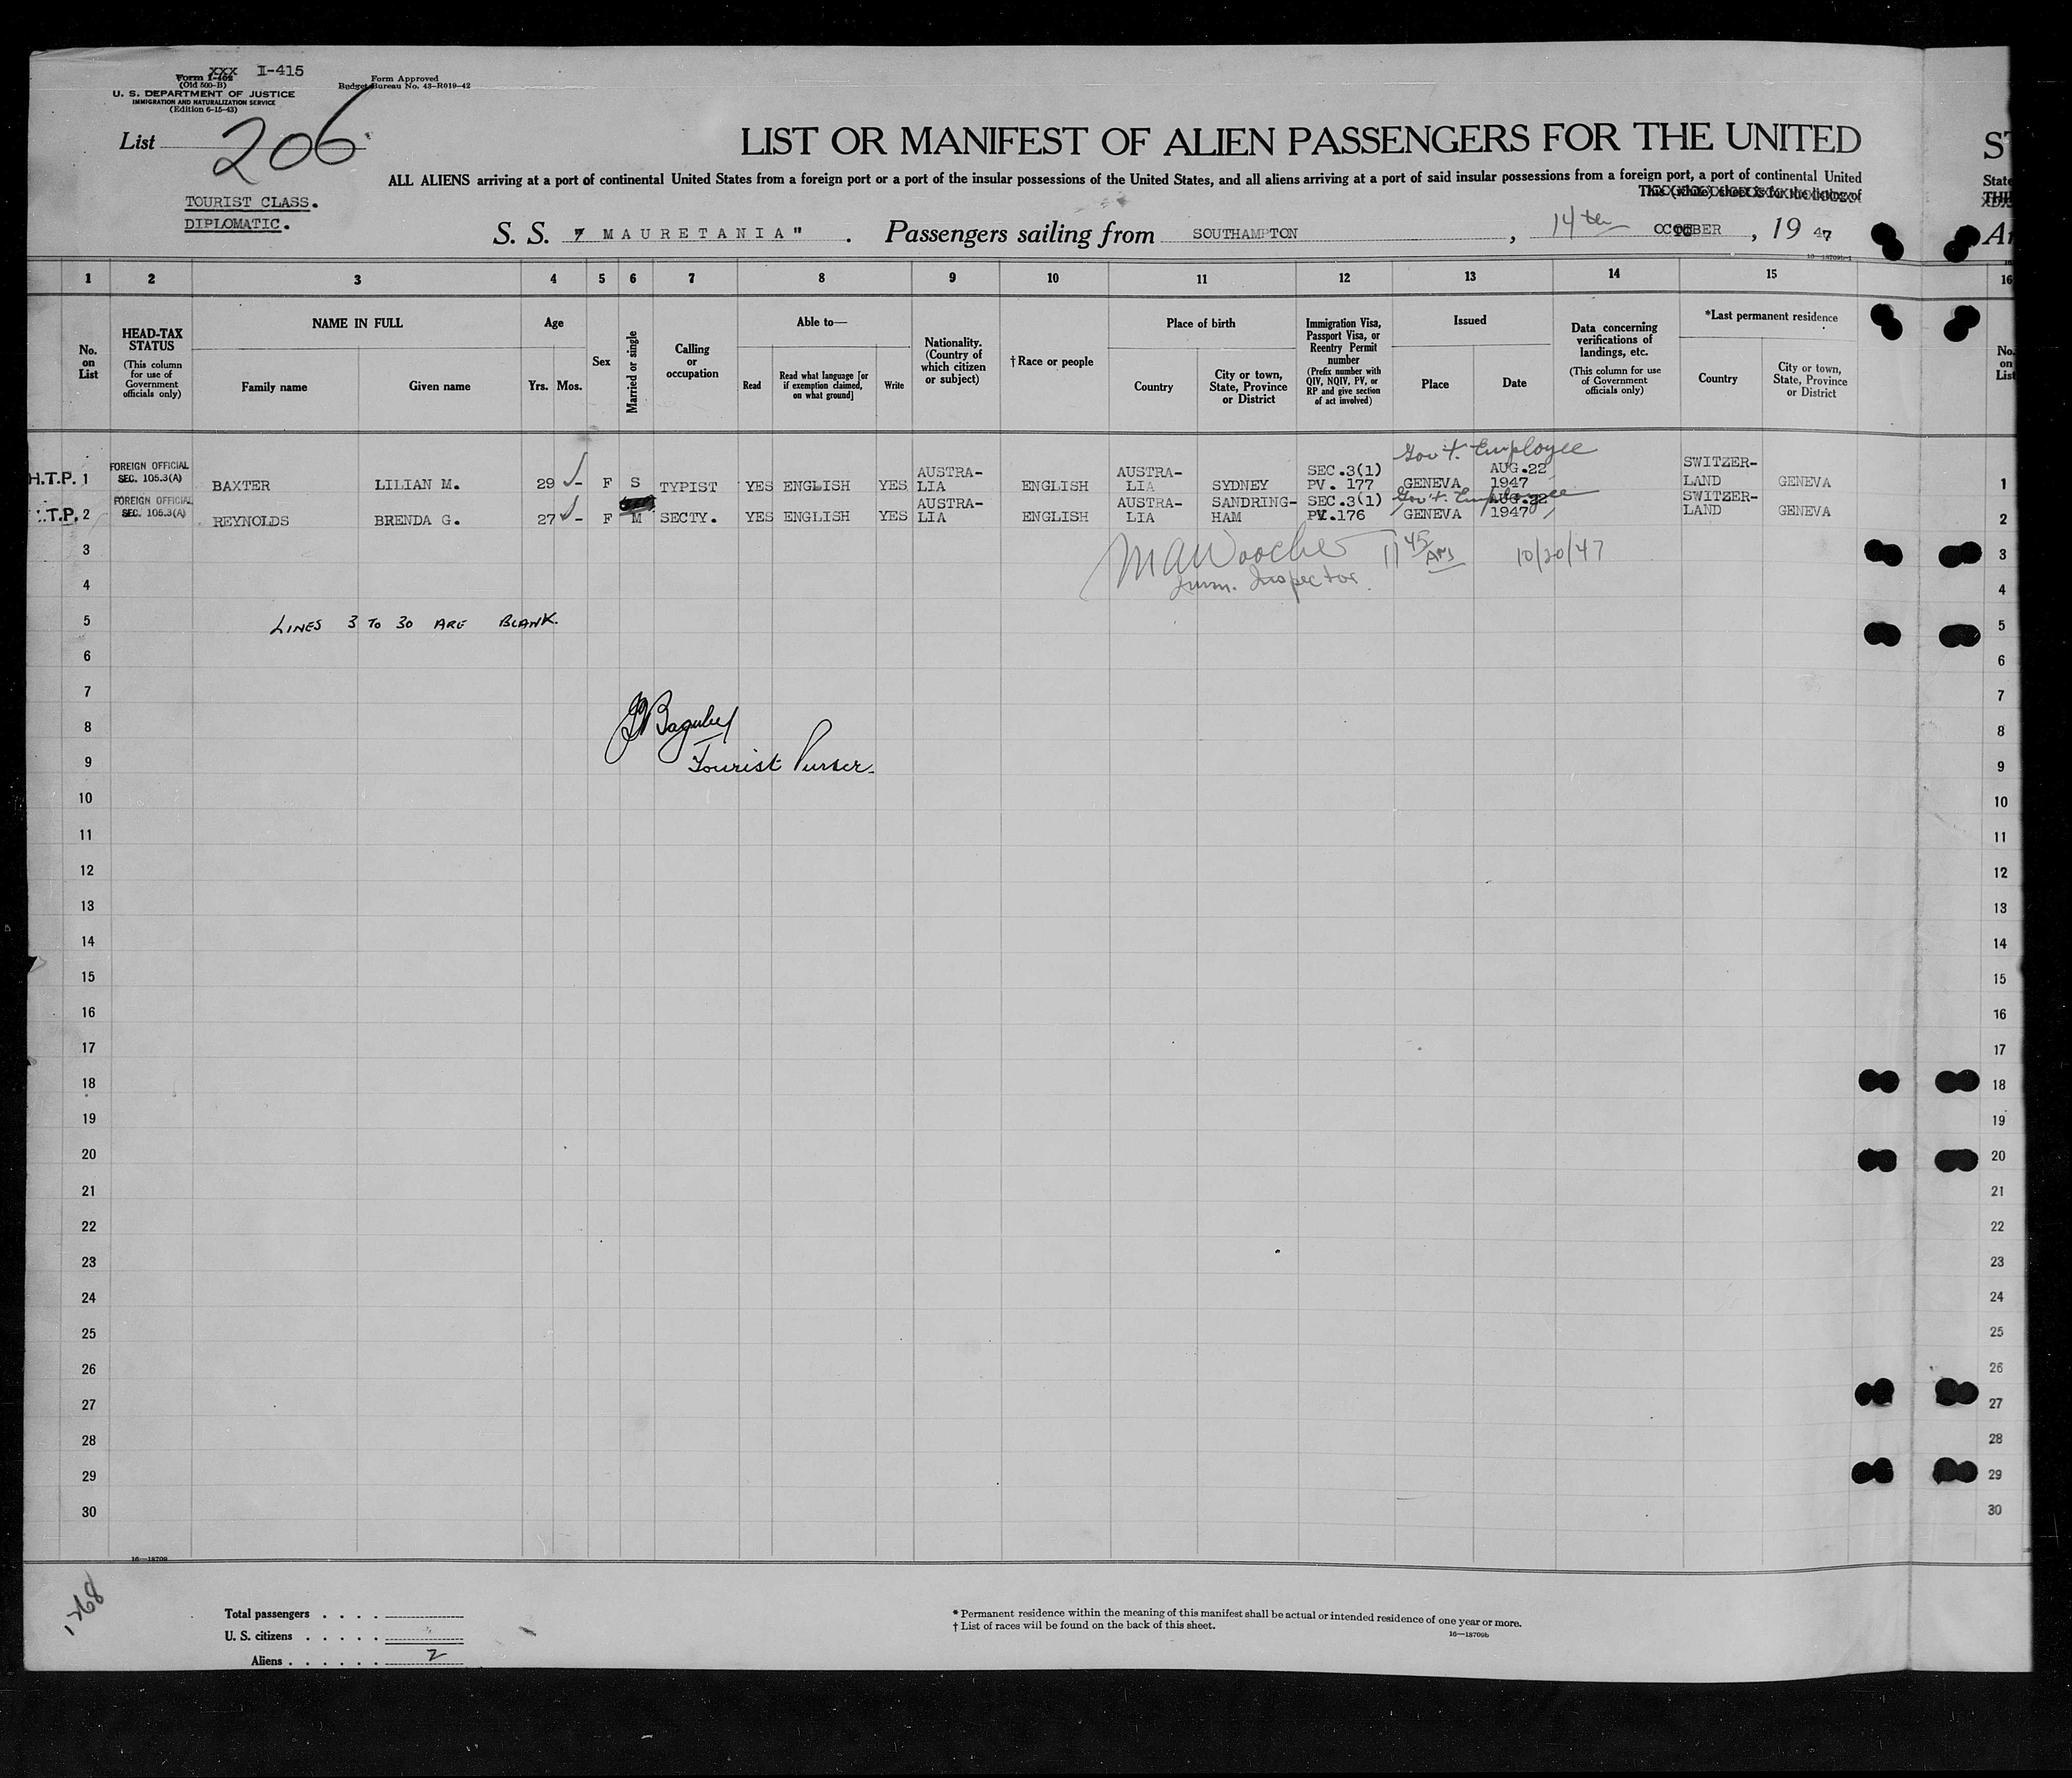 XXX I-415
Form I-402
(Old 500-B)
U. S. DEPARTMENT OF JUSTICE
IMMIGRATION AND NATURALIZATION SERVICE
(Edition 6-15-43)
Form Approved
Budget Bureau No. 43-R019-42
List 206
TOURIST CLASS.
DIPLOMATIC.
LIST OR MANIFEST OF ALIEN PASSENGERS FOR THE UNITED
ALL ALIENS arriving at a port of continental United States from a foreign port or a port of the insular possessions of the United States, and all aliens arriving at a port of said insular possessions from a foreign port, a port of continental United
This (white) sheet is for the listing of
S. S. " MAURETANIA" . Passengers sailing from SOUTHAMPTON , 14th OCTOBER , 19 47
1 2 3 4 5 6 7 8 9 10 11 12 13 14 15
No. on List
HEAD-TAX STATUS
(This column for use of Government officials only)
NAME IN FULL
Family name Given name
Age
Yrs. Mos.
Sex
Married or single
Calling or occupation
Able to—
Read Read what language [or if exemption claimed, on what ground] Write
Nationality. (Country of which citizen or subject)
†Race or people
Place of birth
Country City or town, State, Province or District
Immigration Visa, Passport Visa, or Reentry Permit number
(Prefix number with QIV, NQIV, PV, or RP and give section of act involved)
Issued
Place Date
Data concerning verifications of landings, etc.
(This column for use of Government officials only)
*Last permanent residence
Country City or town, State, Province or District
Gov't. Employee
H.T.P. 1 FOREIGN OFFICIAL SEC. 105.3(A) BAXTER LILIAN M. 29 - F S TYPIST YES ENGLISH YES AUSTRA-LIA ENGLISH AUSTRA-LIA SYDNEY SEC.3(1) PV. 177 GENEVA AUG.22 1947 SWITZER-LAND GENEVA 1
Gov't. Employee
.T.P. 2 FOREIGN OFFICIAL SEC. 105.3(A) REYNOLDS BRENDA G. 27 - F M SECTY. YES ENGLISH YES AUSTRA-LIA ENGLISH AUSTRA-LIA SANDRING-HAM SEC.3(1) PV.176 GENEVA AUG.22 1947 SWITZER-LAND GENEVA 2
3 11 45 AM 10/20/47 3
4 Imm. Inspector 4
5 LINES 3 TO 30 ARE BLANK. 5
6 6
7 7
8 8
9 Tourist Purser. 9
10 10
11 11
12 12
13 13
14 14
15 15
16 16
17 17
18 18
19 19
20 20
21 21
22 22
23 23
24 24
25 25
26 26
27 27
28 28
29 29
30 30
16—18709
Total passengers . . . .
U. S. citizens . . . . .
Aliens . . . . . . 2
* Permanent residence within the meaning of this manifest shall be actual or intended residence of one year or more.
† List of races will be found on the back of this sheet.
16—18709b
State
16
No. on List